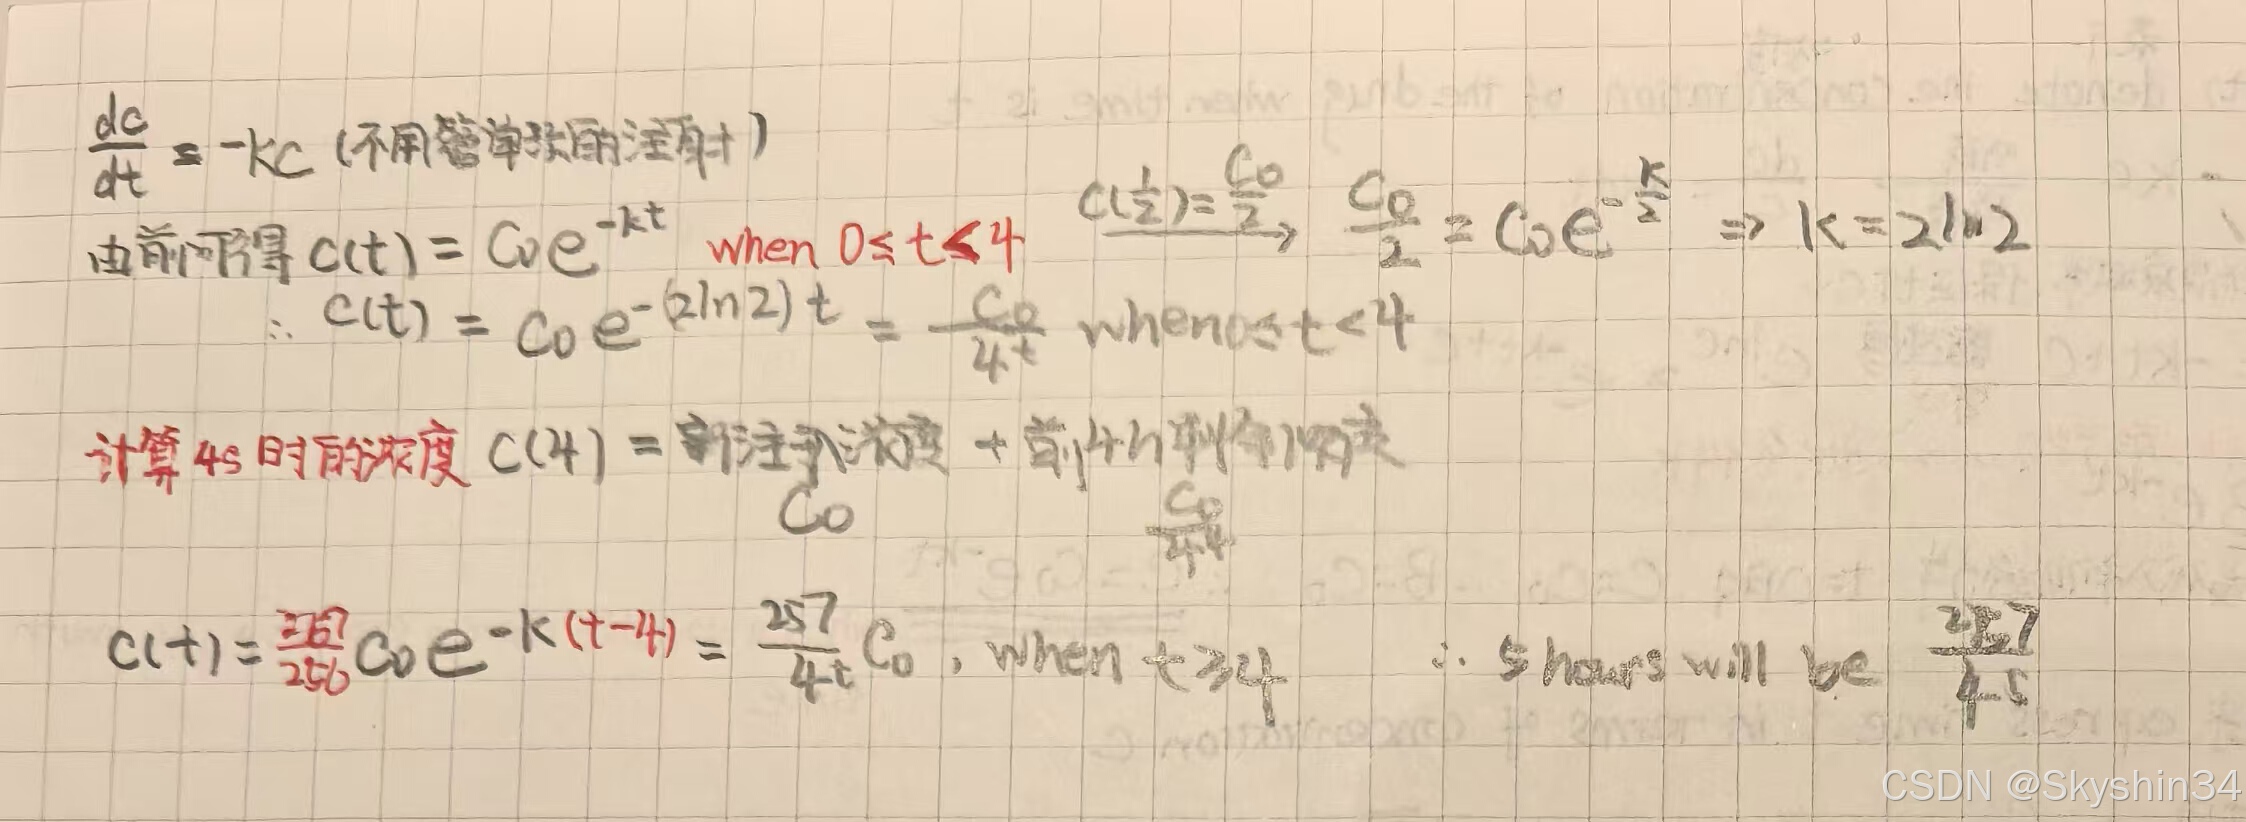 dc/dt = -kc (不用管单次的注射)
由前问可得 c(t) = C₀e^{-kt} when 0≤t<4 c(1/2)=C₀/2 → C₀/2 = C₀e^{-k/2} ⇒ k=2ln2
∴ c(t) = C₀e^{-(2ln2)t} = C₀/4^t when 0≤t<4
计算4s时的浓度 c(4) = 新注射浓度 + 前4h剩余浓度
C₀ C₀/4^4
c(t) = 257/256 C₀e^{-k(t-4)} = 257/4^t C₀, when t≥4 ∴ 5 hours will be 257/4^5
CSDN @Skyshin34